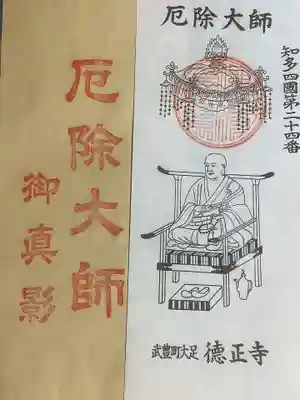 厄除大師
知多四國第二十四番
武豊町大足 徳正寺
厄除大師
御真影